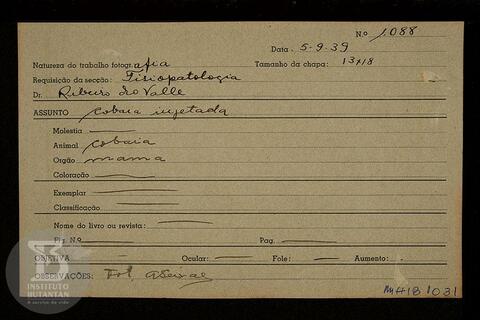 N.o 1088
Data 5-9-39
Natureza do trabalho fotogr.afia Tamanho da chapa: 13x18
Requisição da secção: Fisiopatologia
Dr. Ribeiro do Valle
ASSUNTO cobaia injetada
Molestia
Animal cobaia
Orgão mama
Coloração
Exemplar
Classificação
Nome do livro ou revista:
Fig. N.o Pag.
OBJETIVA Ocular: Fole: Aumento:
OBSERVAÇÕES: Fot.
INSTITUTO
BUTANTAN
A serviço da vida